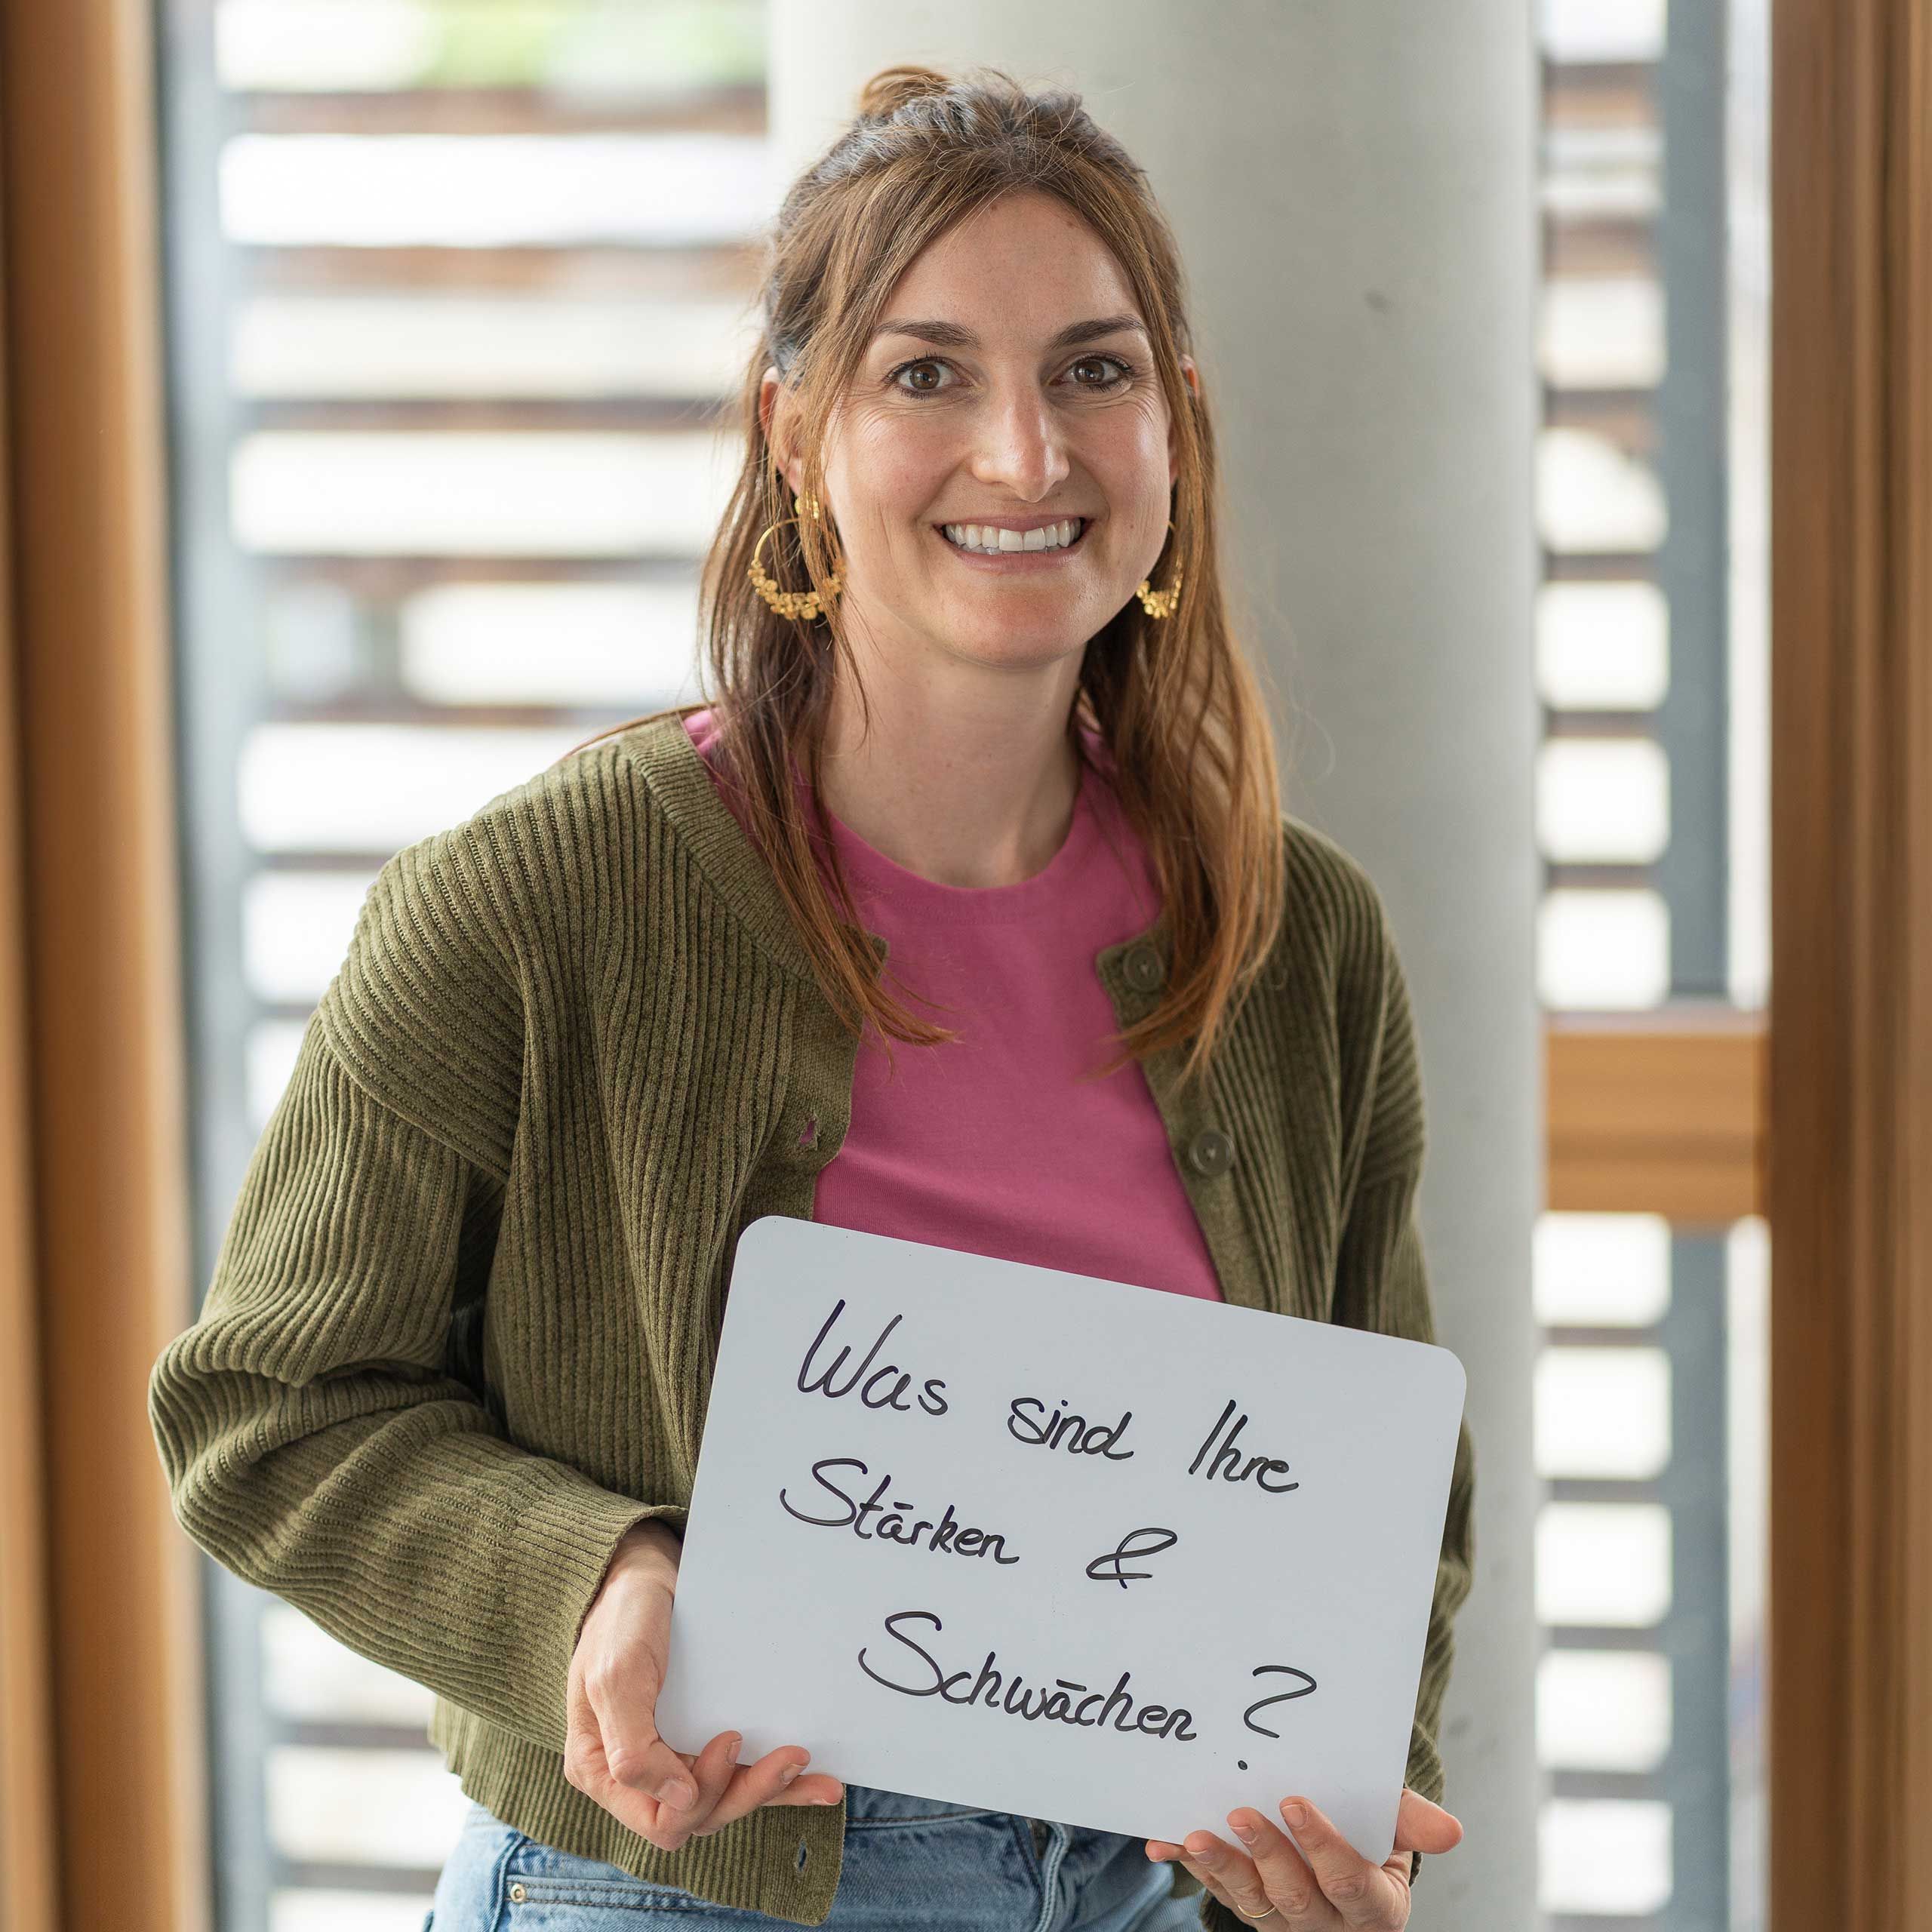 Was sind Ihre
Stärken &
Schwächen?